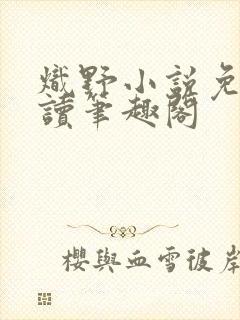 熾野小説免
讀筆趣閣
櫻與血雪彼岸